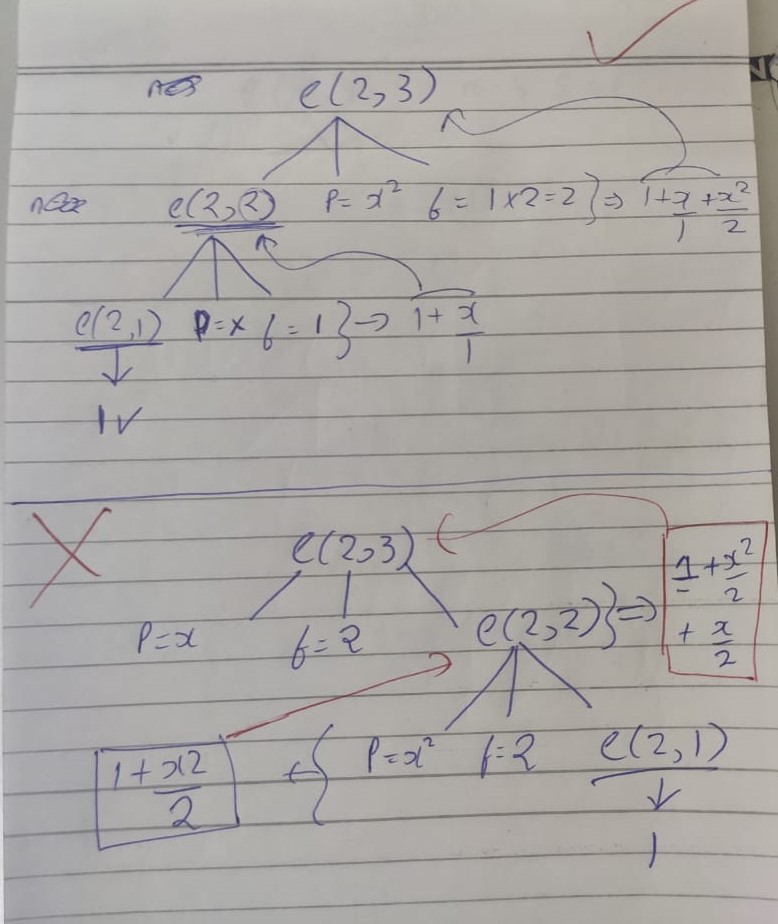 e(2,3)
e(2,2) P = x² f = 1×2=2 } ⇒ 1+x/1+x²/2
e(2,1) P=x f = 1 } → 1+ x/1
↓
1 ✓
e(2,3)
P=x f=2 e(2,2) } ⇒ 1 + x²/2 + x/2
1+x2/2 ← { P=x² f=2 e(2,1)
↓
1